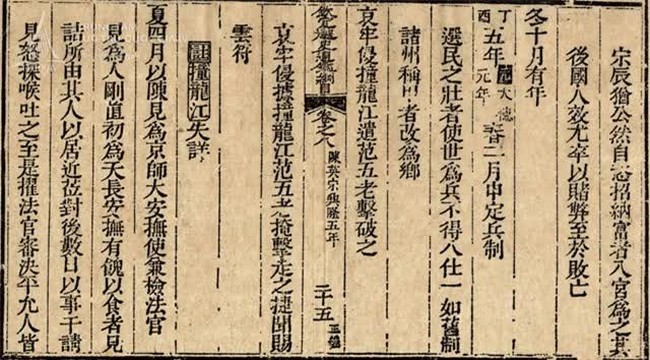 宗辰猶公然自恣招納富者入宮為之其
後國人效尤卒以賭弊至於敗亡
冬十月有年
丁酉五年元大德元年春二月申定兵制
選民之壯者使世為兵不得入仕一如舊制
諸州稱甲者改為鄉
哀牢侵撞龍江遣范五老擊破之
欽定越史通鑑綱目 卷之八 陳英宗興隆五年 二十五 正編
哀牢侵據撞龍江范五老掩擊走之捷聞賜
雲符
註撞龍江失詳
夏四月以陳見為京師大安撫使兼檢法官
見為人剛直初為天長安撫有餽以食者見
詰所由其人以居近莅對後數日以事干請
見怒探喉吐之至是擢法官審決平允人皆